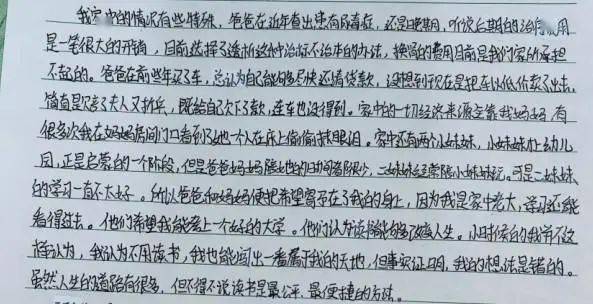 我家中的情况有些特殊,爸爸在近年查出患有尿毒症,还是晚期,听说后期的治疗费用
是一笔很大的开销,目前选择了透析这种治标不治本的办法,换肾的费用目前是我们家所承担
不起的。爸爸在前些年买了车,总认为自己能够尽快还清贷款,没想到现在是把车以低价卖了出去,
简直是赔了夫人又折兵,既给自己欠下了款,连车也没得到。家中的一切经济来源交靠我妈妈,有
很多次我在妈妈房间门口看到她一个人在床上偷偷抹眼泪。家中还有两个小妹妹,小妹妹上幼儿
园,正是启蒙的一个阶段,但是爸爸妈妈陪她的时间都很少,二妹妹经常陪小妹妹玩。可是二妹妹
的学习一直不太好。所以爸爸和妈妈便把希望寄存在了我的身上,因为我是家中老大,学习还能
看得过去。他们希望我能考上一个好的大学。他们认为读书能够改变人生。小时候的我并不这
样认为,我认为不用读书,我也能闯出一番属于我的天地,但事实证明,我的想法是错的。
虽然人生的道路有很多,但不得不说读书是最公平、最便捷的方法。